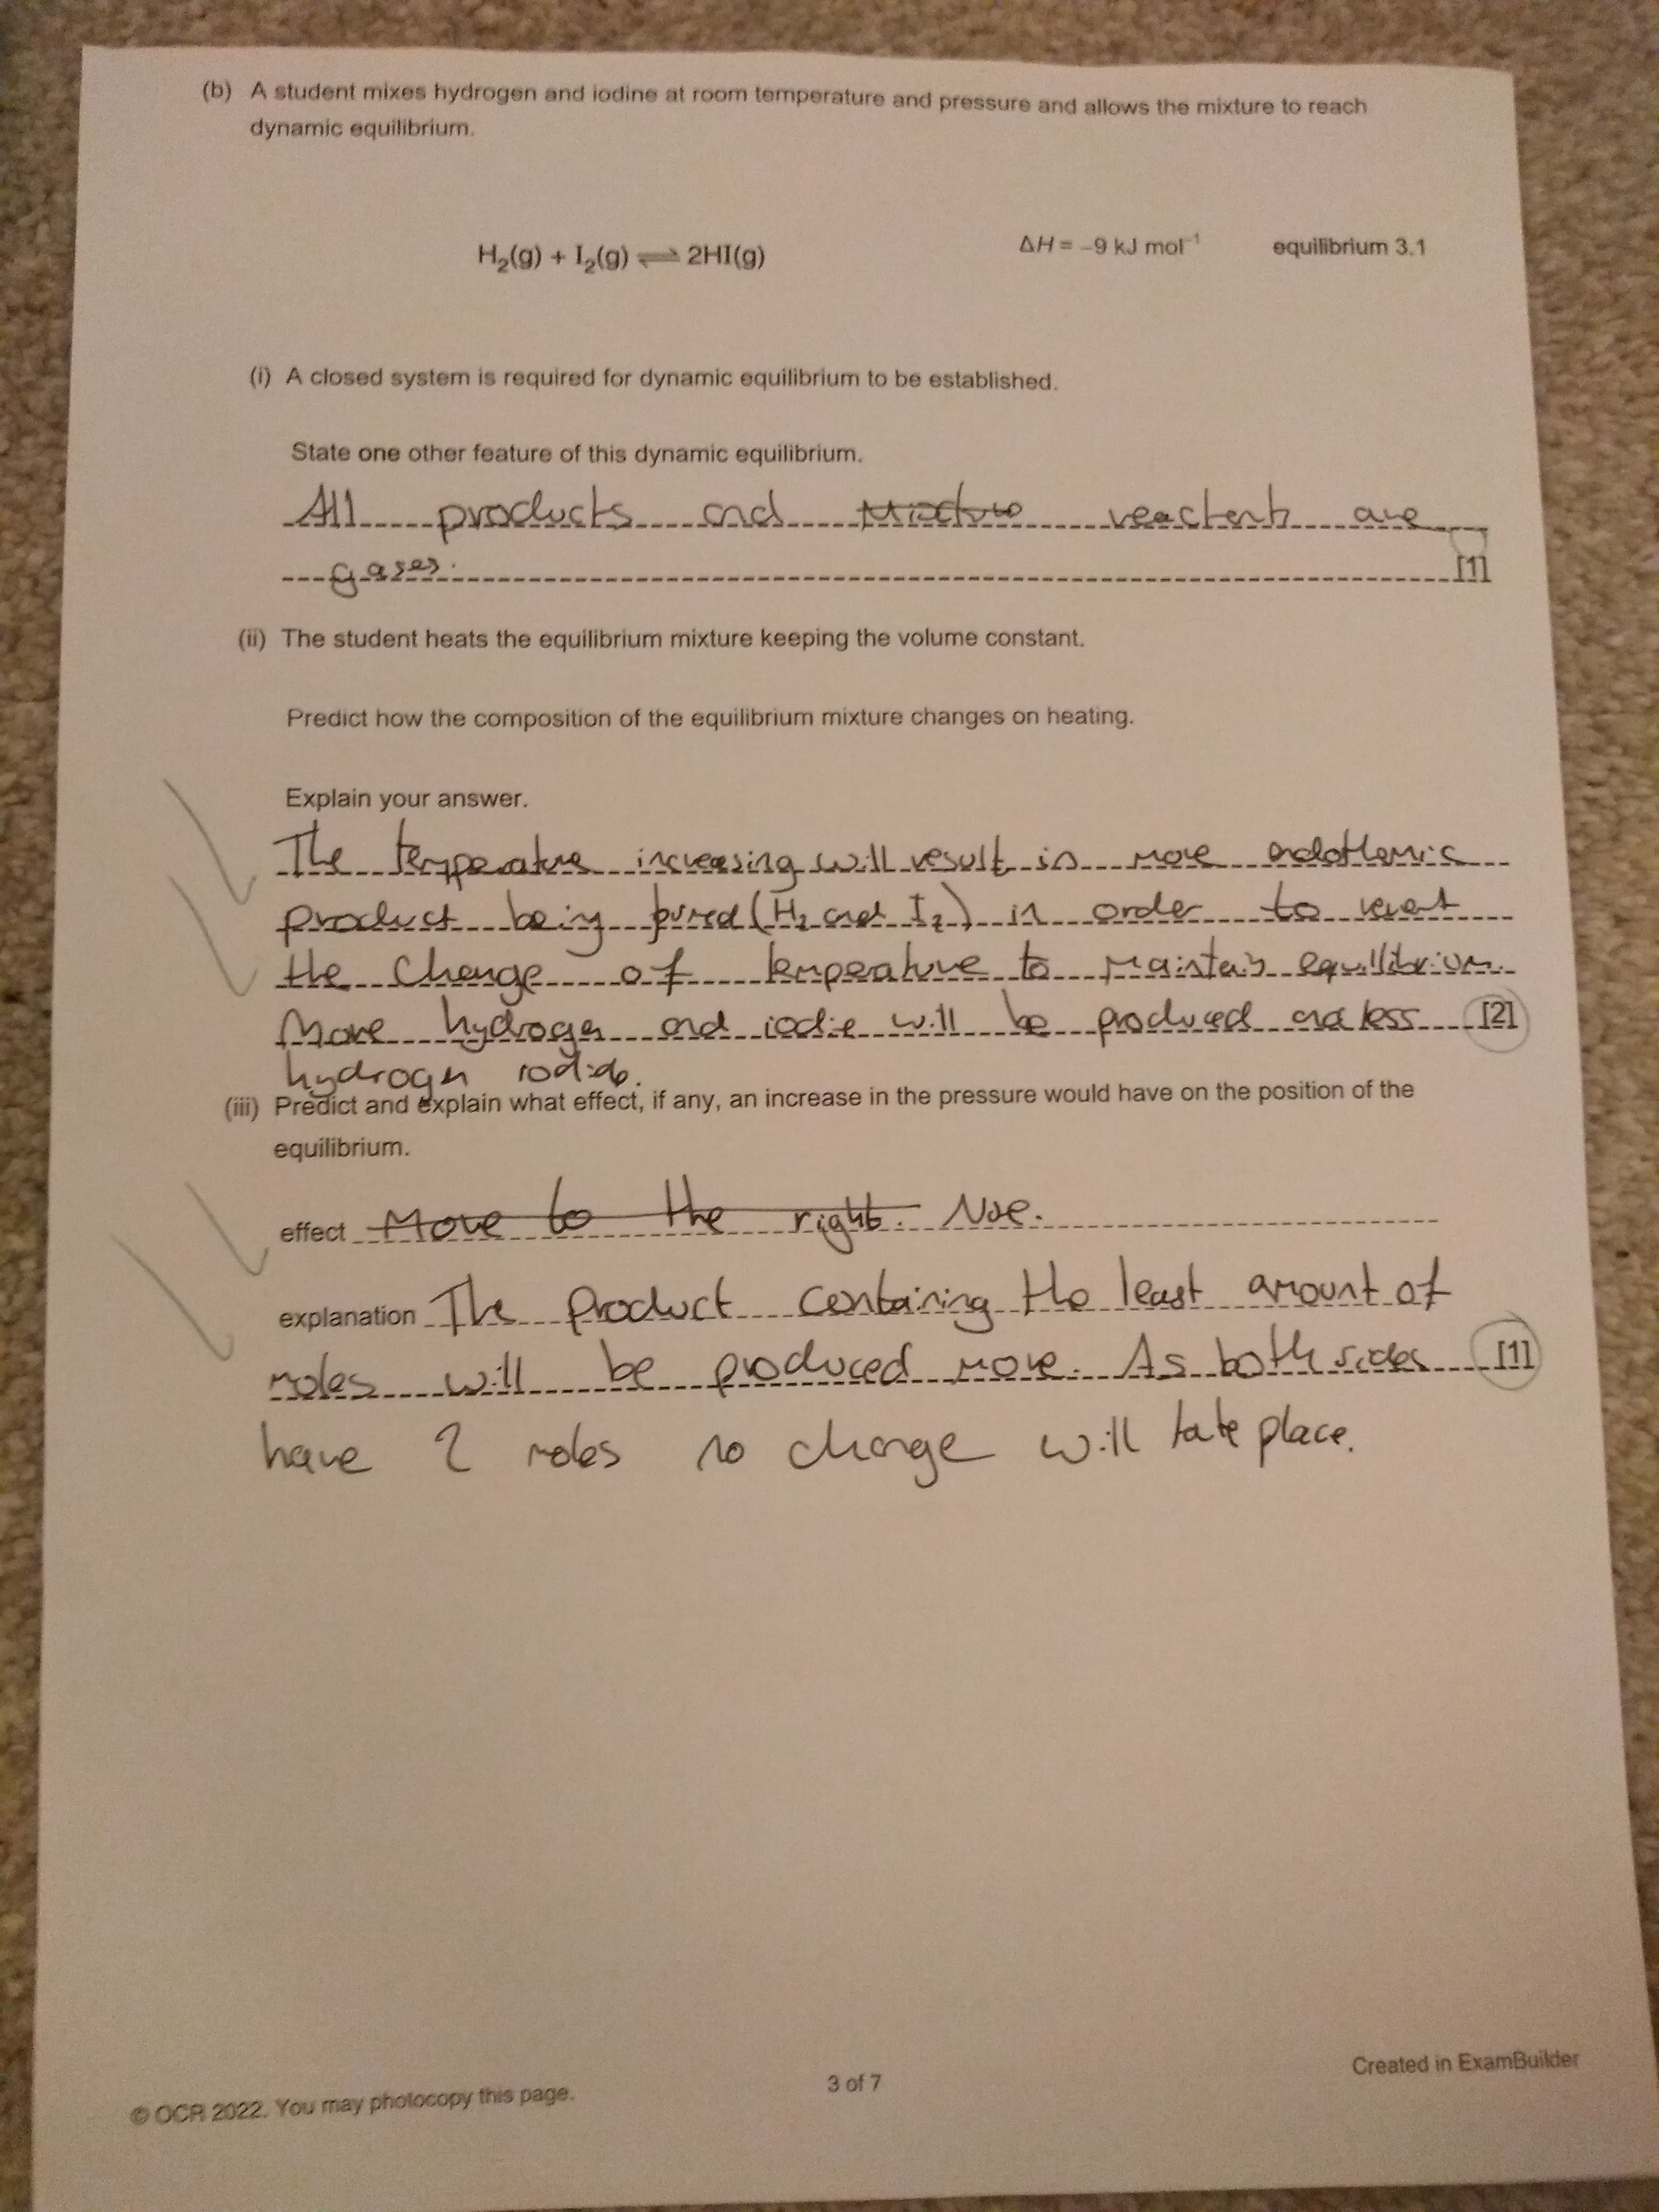 (b) A student mixes hydrogen and iodine at room temperature and pressure and allows the mixture to reach
dynamic equilibrium.
H₂(g) + I₂(g) ⇌ 2HI(g) ΔH = –9 kJ mol⁻¹ equilibrium 3.1
(i) A closed system is required for dynamic equilibrium to be established.
State one other feature of this dynamic equilibrium.
All products and reactents are
gases. [1]
(ii) The student heats the equilibrium mixture keeping the volume constant.
Predict how the composition of the equilibrium mixture changes on heating.
Explain your answer.
The temperature increasing will result in more endothermic
product being (H₂ and I₂) in order to
the change of temperature to maintain equillibrium.
More hydrogen and iodine will be produced and less [2]
hydrogen iodide.
(iii) Predict and explain what effect, if any, an increase in the pressure would have on the position of the
equilibrium.
effect Move to the right.
explanation The product containing the least amount of
moles will be produced more. As both sides [1]
have 2 moles no change will take place.
© OCR 2022. You may photocopy this page. 3 of 7 Created in ExamBuilder